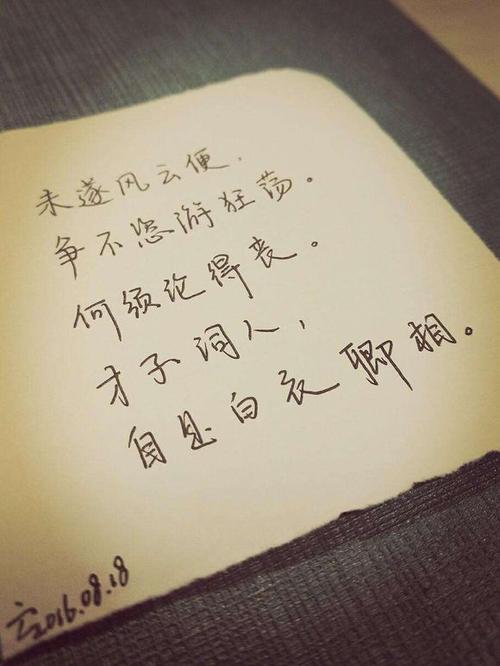 未遂风云便，
争不恣游狂荡。
何须论得丧。
才子词人，
自是白衣卿相。
2016.08.18